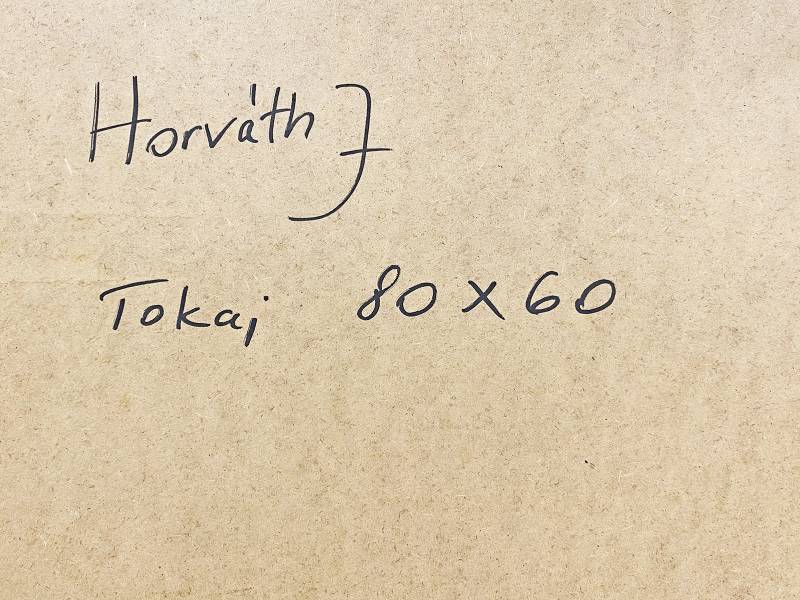 Horváth J
Tokaj 80 x 60